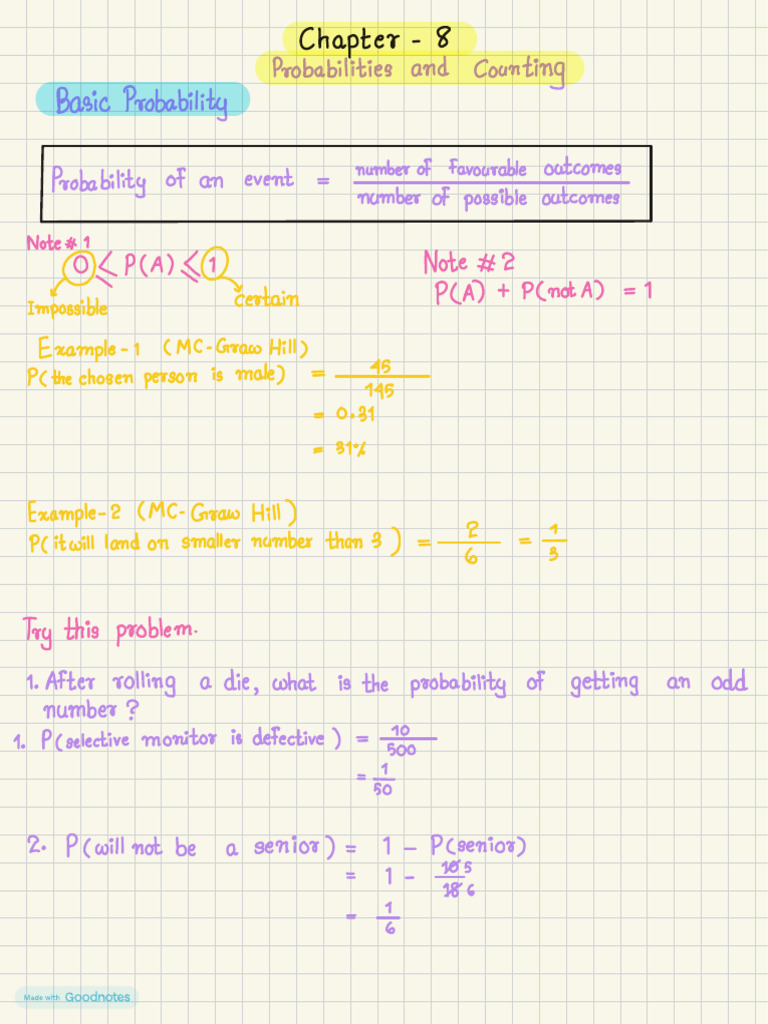 Chapter - 8
Probabilities and Counting
Basic Probability
Probability of an event = number of favourable outcomes / number of possible outcomes
Note # 1
0 ≤ P(A) ≤ 1
Impossible
certain
Note # 2
P(A) + P(not A) = 1
Example - 1 (MC-Graw Hill)
P(the chosen person is male) = 45/145
= 0.31
= 31%
Example - 2 (MC-Graw Hill)
P(it will land on smaller number than 3) = 2/6 = 1/3
Try this problem.
1. After rolling a die, what is the probability of getting an odd
number?
1. P(selective monitor is defective) = 10/500
= 1/50
2. P(will not be a senior) = 1 - P(senior)
= 1 - 15 5/18 6
= 1/6
Made with Goodnotes